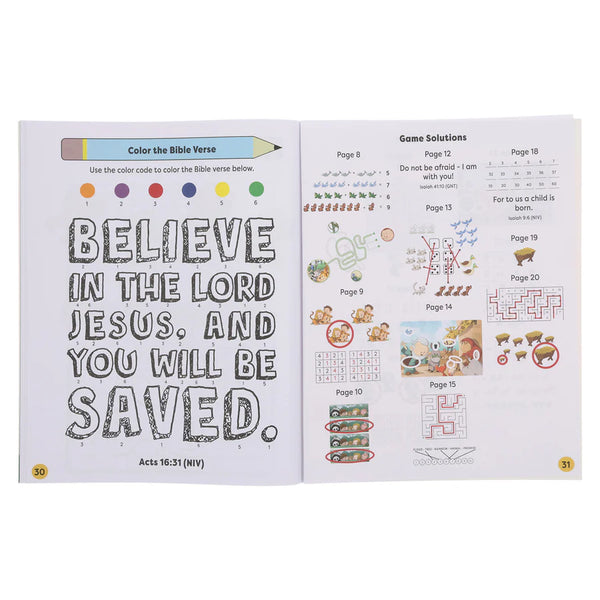 Color the Bible Verse
Use the color code to color the Bible verse below.
1 2 3 4 5 6
BELIEVE
IN THE LORD
JESUS, AND
YOU WILL BE
SAVED.
Acts 16:31 (NIV)
30
Game Solutions
Page 8
= 5
= 7
= 6
= 9
Page 9
Page 10
Page 12
Do not be afraid - I am
with you!
Isaiah 41:10 (GNT)
Page 13
Page 14
Page 15
Page 18
For to us a child is
born.
Isaiah 9:6 (NIV)
Page 19
Page 20
31